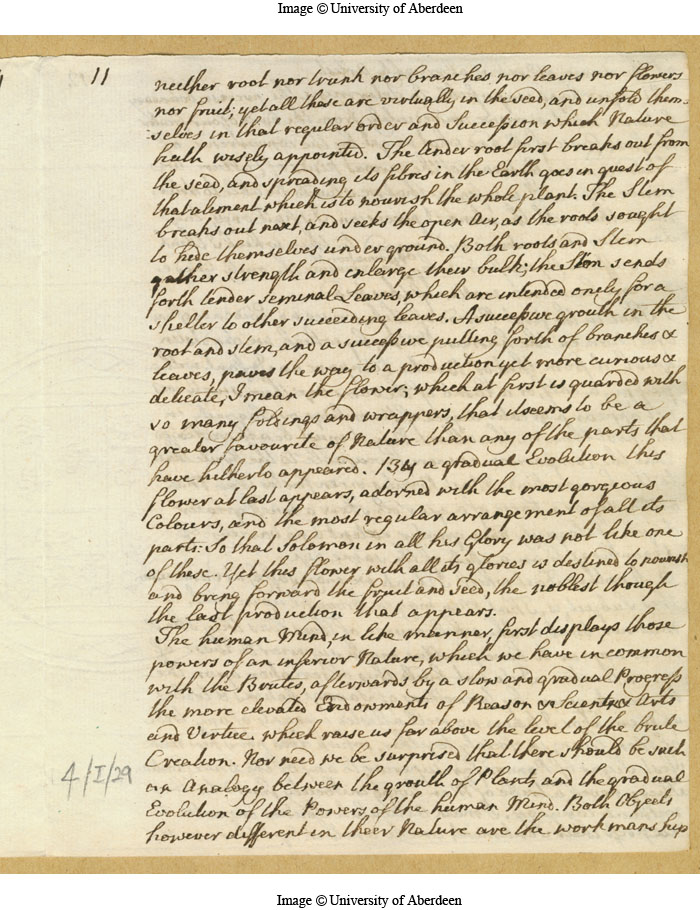 Image © University of Aberdeen
11
neither root nor trunk nor branches nor leaves nor flowers
nor fruit; yet all these are virtually in the seed, and unfold them-
selves in that regular order and Succession which Nature
hath wisely appointed. The tender root first breaks out from
the seed, and spreading its fibres in the Earth goes in quest of
that aliment which is to nourish the whole plant. The Stem
breaks out next, and seeks the open Air, as the roots sought
to hide themselves under ground. Both roots and Stem
gather strength and enlarge their bulk; the Stem sends
forth tender seminal Leaves, which are intended onely for a
shelter to other succeeding leaves. A successive grouth in the
root and stem, and a successive putting forth of branches &
leaves, paves the way to a production yet more curious &
delicate, I mean the flower; which at first is guarded with
so many foldings and wrappers, that it seems to be a
greater favourite of Nature than any of the parts that
have hitherto appeared. By a gradual Evolution this
flower at last appears, adorned with the most gorgeous
Colours, and the most regular arrangement of all its
parts: So that Solomon in all his Glory was not like one
of these. Yet this flower with all its glories is destined to nourish
and bring forward the fruit and Seed, the noblest though
the last production that appears.
The human Mind, in like manner, first displays those
powers of an inferior Nature, which we have in common
with the Brutes, afterwards by a slow and gradual Progress
the more elevated Endowments of Reason & Science & Arts
and Virtue, which raise us far above the level of the brute
Creation. Nor need we be surprised that there should be such
an Analogy between the grouth of Plants and the gradual
Evolution of the Powers of the human Mind. Both Objects
however different in their Nature are the workmanship
4/I/29
Image © University of Aberdeen